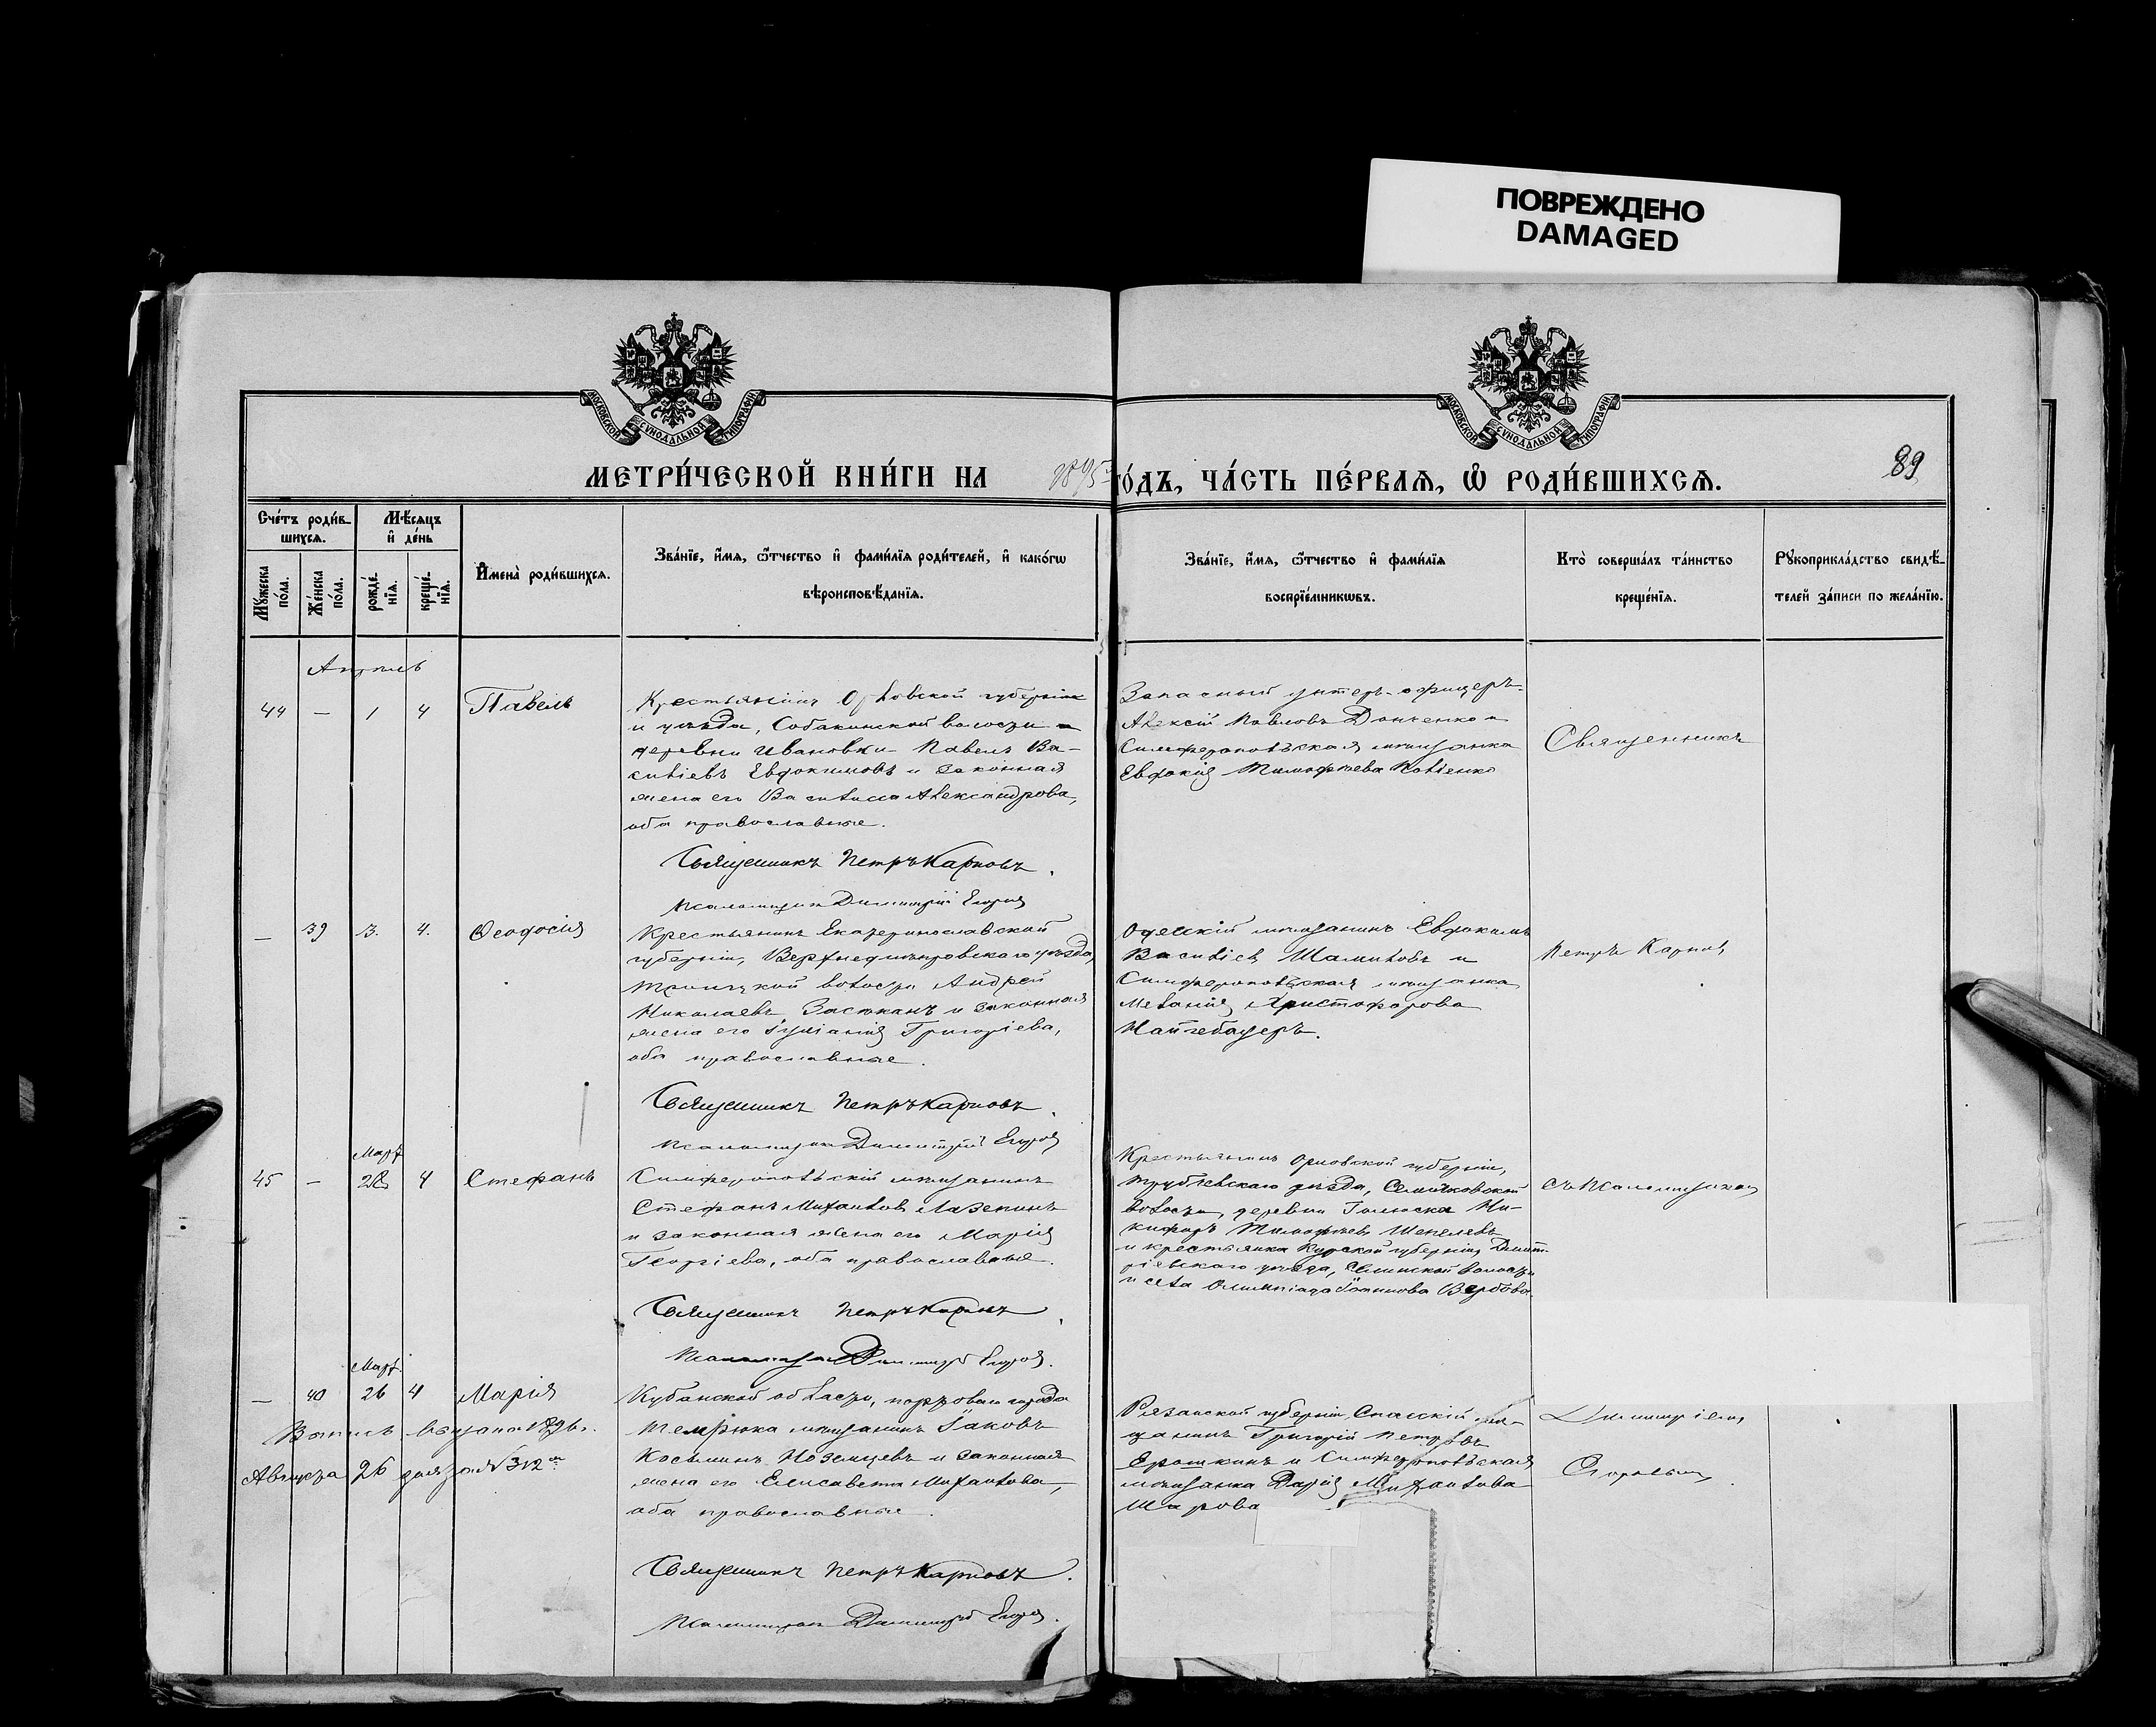 ПОВРЕЖДЕНО
DAMAGED
МОСКОВСКОЙ СУНОДАЛЬНОЙ ТИПОГРАФІИ
МОСКОВСКОЙ СУНОДАЛЬНОЙ ТИПОГРАФІИ
МЕТРИ́ЧЕСКОЙ КНИ́ГИ НА 1895 го́дъ, ЧА́СТЬ ПЕ́РВАѦ, Ѡ҆ РОДИ́ВШИХСѦ.
89
Сче́тъ роди́в-
шихсѧ.
Мѣ́сѧцъ
и҆ де́нь
Мꙋ́жеска по́ла.
Же́нска по́ла.
рожде́-нїѧ.
креще́-нїѧ.
И҆мена̀ роди́вшихсѧ.
Зва́нїе, и҆́мѧ, ѻ҆́тчество и҆ фами́лїѧ роди́телей, и҆ како́гѡ
вѣроисповѣ́данїѧ.
Зва́нїе, и҆́мѧ, ѻ҆́тчество и҆ фами́лїѧ
воспрїе́мникѡвъ.
Кто̀ соверша́лъ та́инство
креще́нїѧ.
Рꙋкоприкла́дство свидѣ́-
телей за́писи по жела́нїю.
Апрель
44 — 1 4 Павелъ
Крестьянинъ Орловской губерніи
и уѣзда, Собакинской волости
деревни Ивановки Павелъ Ва-
сильевъ Евдокимовъ и законная
жена его Василиса Александрова,
оба православные.
Священникъ Петръ Карповъ.
Псаломщикъ Димитрій Егоровъ
Запасный унтеръ-офицеръ
Алексій Павловъ Донченко и
Симферопольская мѣщанка
Евдокія Тимофеева
Священникъ
— 39 3. 4. Ѳеодосія
Крестьянинъ Екатеринославской
губерніи, Верхнеднѣпровскаго уѣзда,
Троицкой волости Андрей
Николаевъ и законная
жена его Іуліанія Григоріева,
оба православные.
Священникъ Петръ Карповъ.
Псаломщикъ Димитрій Егоровъ
Одесскій мѣщанинъ Евдокимъ
Василіевъ и
Симферопольская мѣщанка
Меланія Христофорова
Петръ Карповъ
Март
45 — 28 4 Стефанъ
Симферопольскій мѣщанинъ
Стефанъ Михаиловъ Лазенинъ
и законная жена его Марія
Георгіева, оба православные.
Священникъ Петръ Карповъ
Псаломщикъ Димитрій Егоровъ.
Крестьянинъ Орловской губерніи,
Трубчевскаго уѣзда, Семячковской
волости, деревни Ни-
кифоръ Тимофѣевъ Шепелевъ
и крестьянка Курской губерніи Димит-
ріевскаго уѣзда, волости
и села Олимпіада Іоаннова
съ Псаломщикомъ
Март
— 40 26 4 Марія
Кубанской области, портоваго города
Темрюка мѣщанинъ Іаковъ
Косьминъ и законная
жена его Елисавета Михаилова,
оба православные.
Священникъ Петръ Карповъ.
Псаломщикъ Димитрій Егоровъ.
Выпись выдана 1896 г.
Августа 26 дня за № 312
Рязанской губерніи Спасскій мѣ-
щанинъ Григорій Петровъ
Ерошкинъ и Симферопольская
мѣщанка Дарія Михаилова
Шарова
Димитріемъ
Егоровымъ